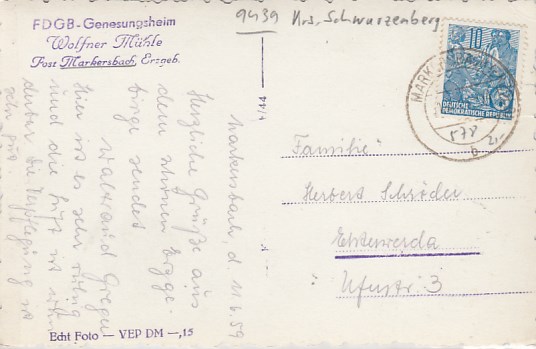 FDGB-Genesungsheim
Wolfner Mühle
Post Markersbach, Erzgeb.
9439 Krs. Schwarzenberg
10
DEUTSCHE
DEMOKRATISCHE REPUBLIK
MARKERSBACH
b
578
21,-
44/1
Markersbach, d. 11.6.59
Herzliche Grüße aus
dem schönen Erzge-
birge sendet
Waltraud
Hier ist es sehr ruhig
und die Luft ist
die Verpflegung ist
Familie
Herbert Schröder
Elsterwerda
Ufustr. 3
Echt Foto — VEP DM —,15